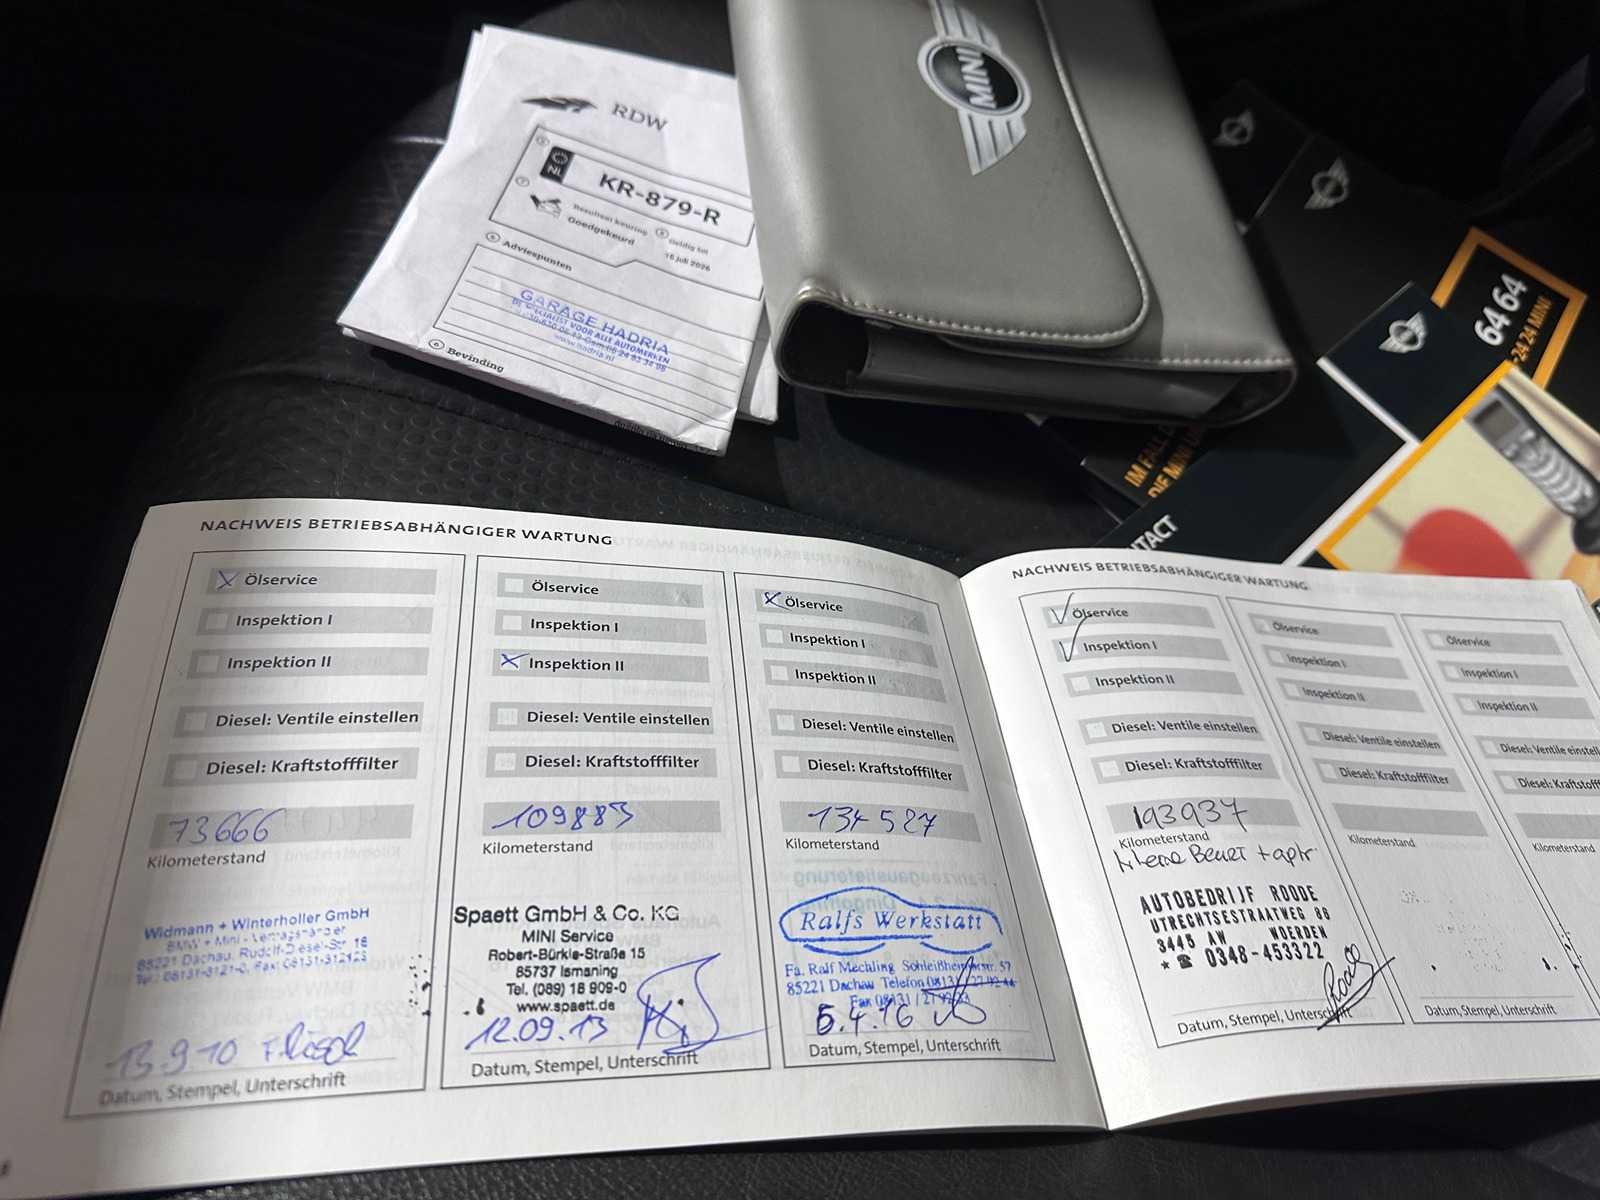 RDW
NL
KR-879-R
Resultaat keuring
Goedgekeurd
Geldig tot
16 juli 2026
Adviespunten
GARAGE HADRIA
DE SPECIALIST VOOR ALLE AUTOMERKEN
www.hadria.nl
Bevinding
MINI
64 64
24 24 MINI
IM FALL
DIE MINI
NTACT
NACHWEIS BETRIEBSABHÄNGIGER WARTUNG
Ölservice
Inspektion I
Inspektion II
Diesel: Ventile einstellen
Diesel: Kraftstofffilter
73666
Kilometerstand
Widmann + Winterholler GmbH
BMW + Mini - Vertragshändler
85221 Dachau, Rudolf-Diesel-Str 16
13.9.10
Datum, Stempel, Unterschrift
Ölservice
Inspektion I
Inspektion II
Diesel: Ventile einstellen
Diesel: Kraftstofffilter
109883
Kilometerstand
Spaett GmbH & Co. KG
MINI Service
Robert-Bürkle-Straße 15
85737 Ismaning
Tel. (089) 18 909-0
www.spaett.de
12.09.13
Datum, Stempel, Unterschrift
Ölservice
Inspektion I
Inspektion II
Diesel: Ventile einstellen
Diesel: Kraftstofffilter
134 527
Kilometerstand
Ralfs Werkstatt
Fa. Ralf Mechling Schleißheimerstr. 57
85221 Dachau Telefon
Fax 08131 /
5.4.16
Datum, Stempel, Unterschrift
NACHWEIS BETRIEBSABHÄNGIGER WARTUNG
Ölservice
Inspektion I
Inspektion II
Diesel: Ventile einstellen
Diesel: Kraftstofffilter
193937
Kilometerstand
Kleine Beurt +
AUTOBEDRIJF RODDE
UTRECHTSESTRAATWEG 86
3445 AW WOERDEN
0348-453322
Datum, Stempel, Unterschrift
Ölservice
Inspektion I
Inspektion II
Diesel: Ventile einstellen
Diesel: Kraftstofffilter
Kilometerstand
Datum, Stempel, Unterschrift
Ölservice
Inspektion I
Inspektion II
Diesel: Ventile einstell
Diesel: Kraftstofffilt
Kilometerstand